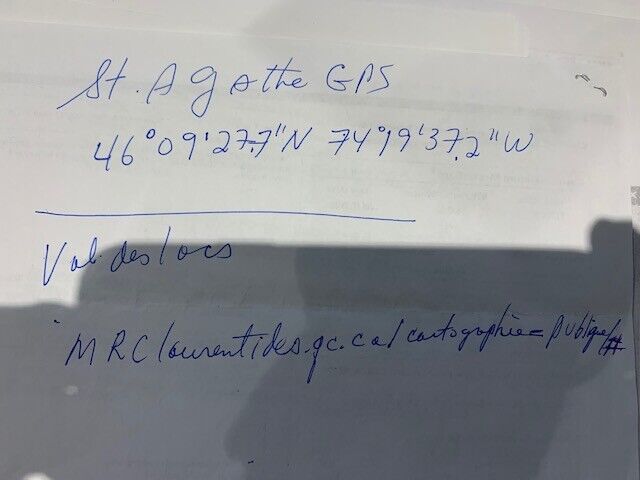 St. Agathe GPS
46°09'27.7"N 74°19'37.2"W
Val.des lacs
MRClaurentides.qc.ca/cartographie=publique/#